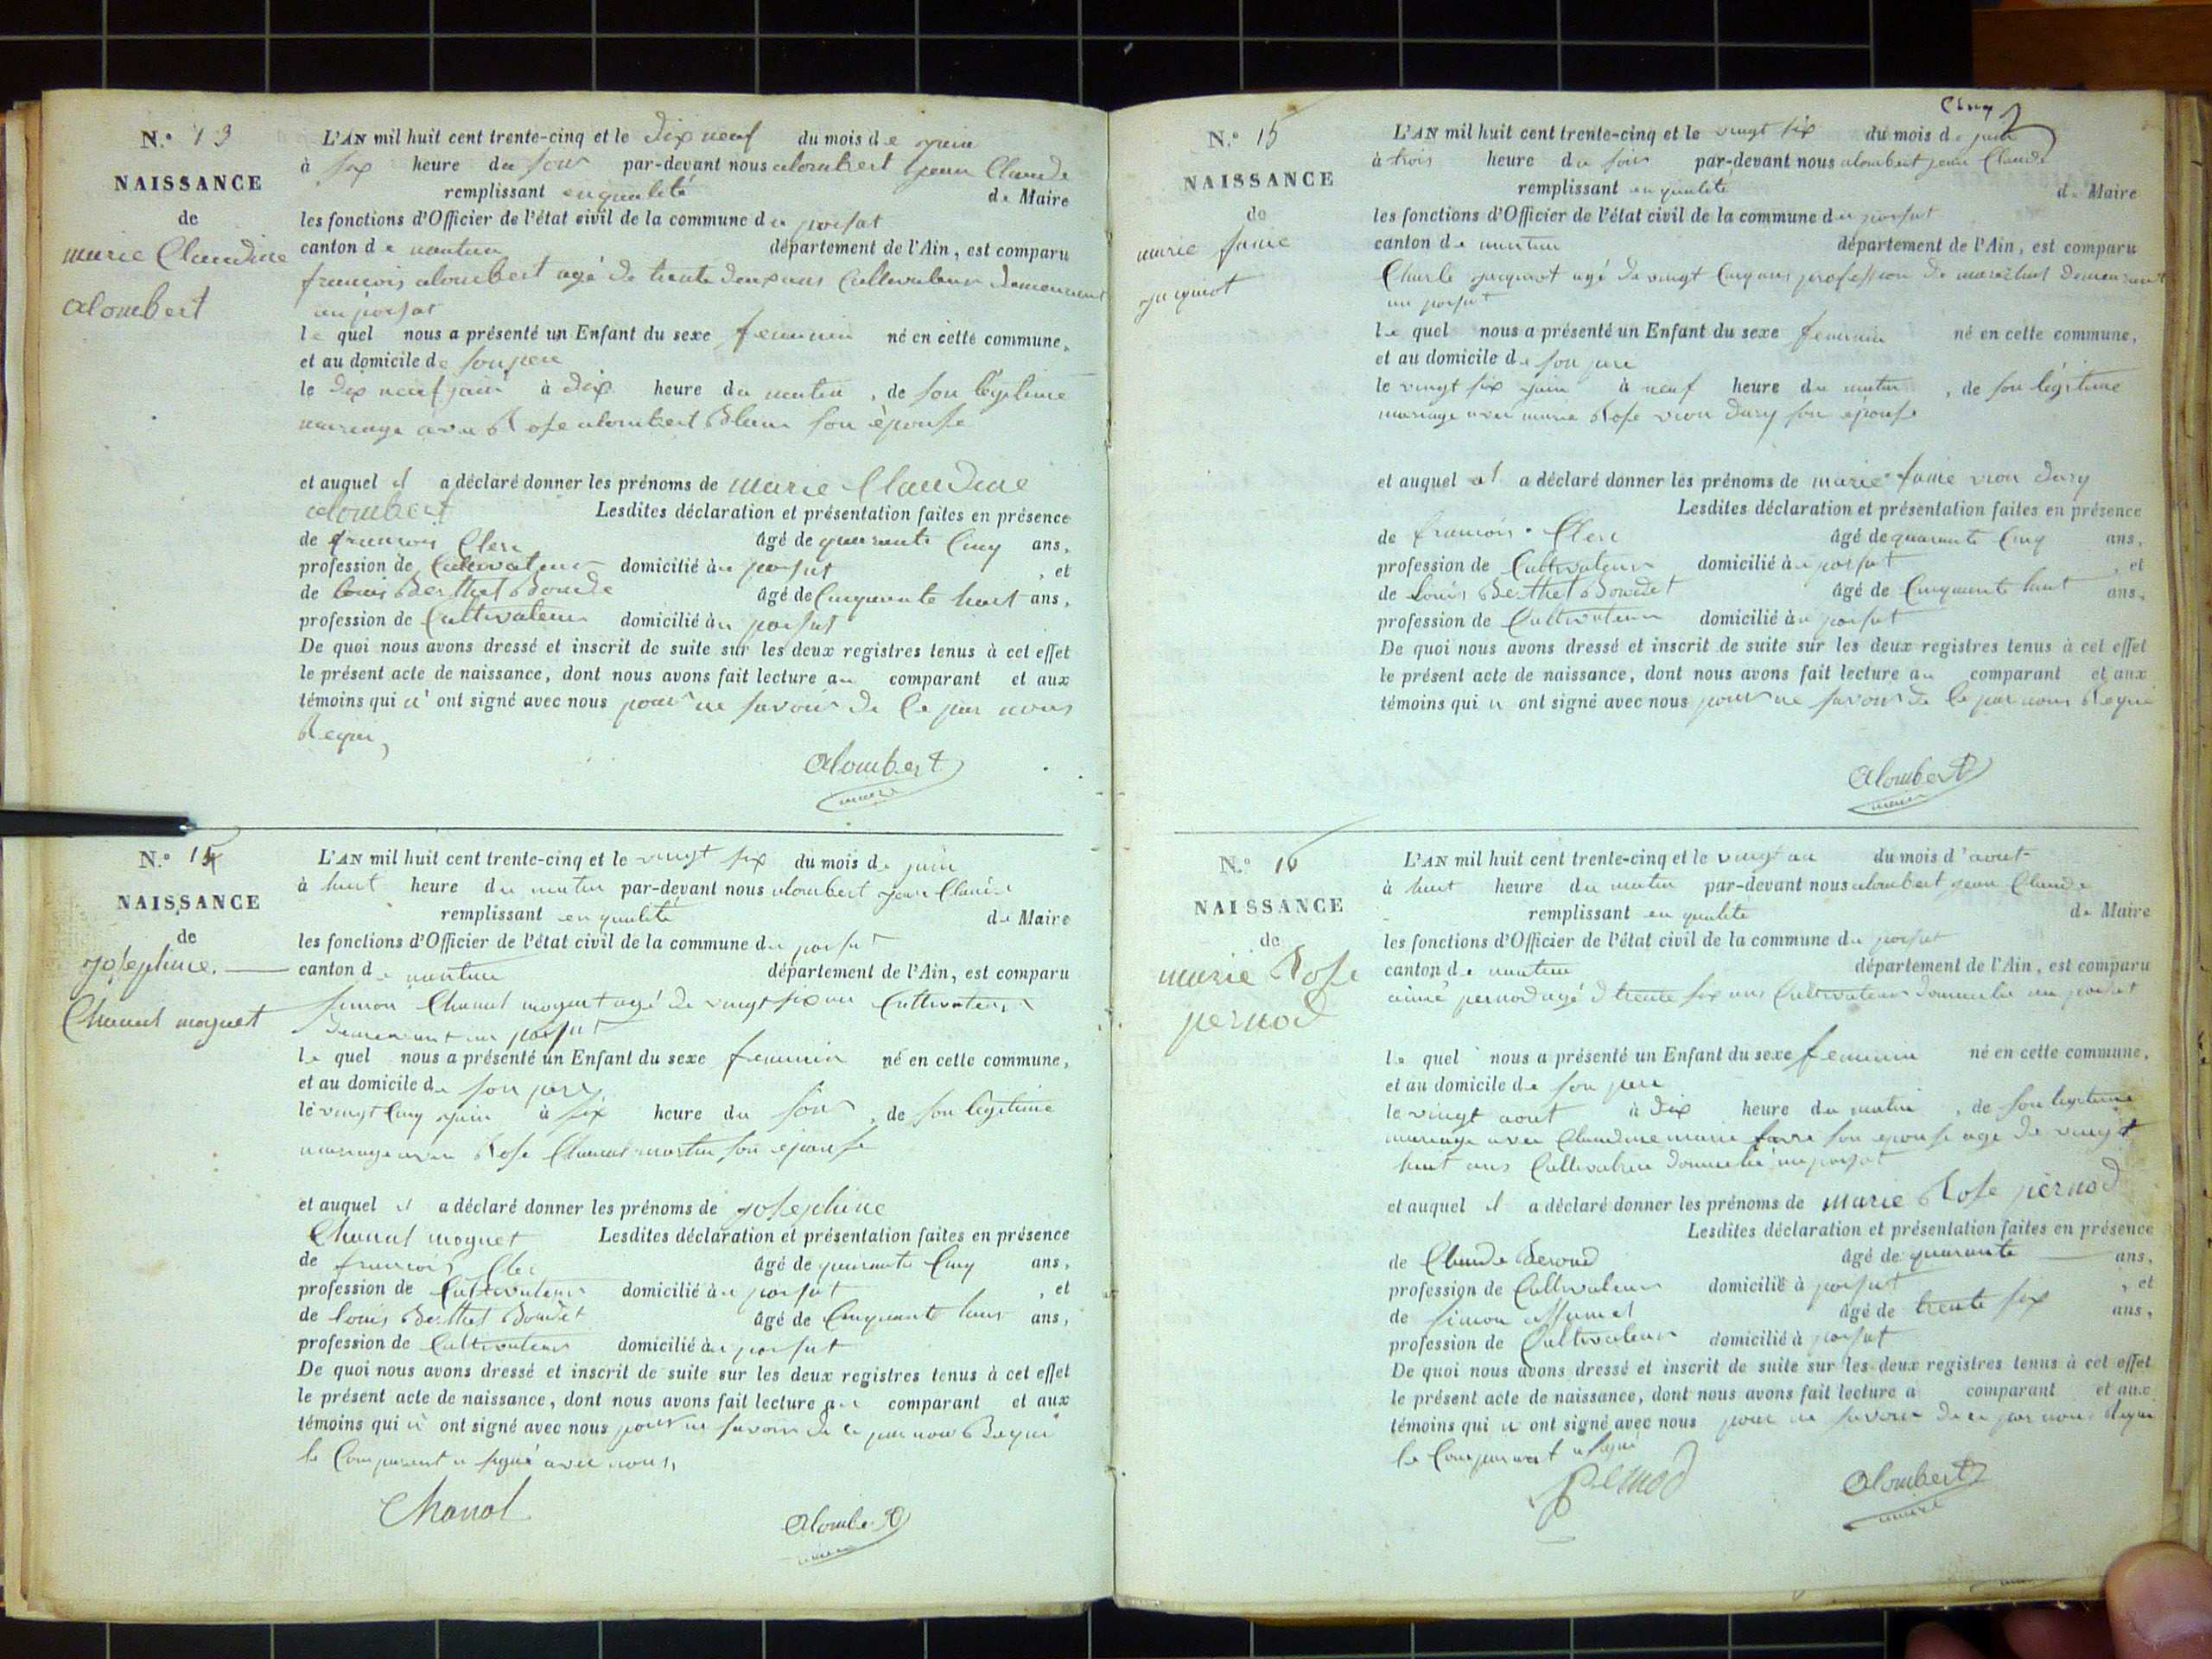 N.º 13
NAISSANCE
de
marie Claudine
alombert
L'AN mil huit cent trente-cinq et le dix neuf du mois de juin
à six heure du soir par-devant nous alombert jean Claude
remplissant en qualité de Maire
les fonctions d'Officier de l'état civil de la commune du porsat
canton de nantua département de l'Ain, est comparu
francois alombert agé de trente deux ans Cultivateur demeurant
au porsat
le quel nous a présenté un Enfant du sexe feminin né en cette commune,
et au domicile de son pere
le dix neuf juin à dix heure du matin, de son legitime
mariage avec Rose alombert Blanc son épouse
et auquel il a déclaré donner les prénoms de marie Claudine
alombert Lesdites déclaration et présentation faites en présence
de francois Clerc âgé de quarante Cinq ans,
profession de Cultivateur domicilié au porsat, et
de louis Berthet Bondet âgé de Cinquante huit ans,
profession de Cultivateur domicilié au porsat
De quoi nous avons dressé et inscrit de suite sur les deux registres tenus à cet effet
le présent acte de naissance, dont nous avons fait lecture au comparant et aux
témoins qui n' ont signé avec nous pour ne savoir de Ce par nous
Requi,
Alombert
maire
N.º 14
NAISSANCE
de
josephine.
Chanal moguet
L'AN mil huit cent trente-cinq et le vingt six du mois de juin
à huit heure du matin par-devant nous alombert jean Claude
remplissant en qualité de Maire
les fonctions d'Officier de l'état civil de la commune du porsat
canton de nantua département de l'Ain, est comparu
simon Chanal moguet agé de vingt six ans Cultivateur
demeurant au porsat
le quel nous a présenté un Enfant du sexe feminin né en cette commune,
et au domicile de son pere
le vingt Cinq juin à six heure du soir, de son legitime
mariage avec Rose Chanal martin son épouse
et auquel il a déclaré donner les prénoms de josephine
Chanal moguet Lesdites déclaration et présentation faites en présence
de francois Cler âgé de quarante Cinq ans,
profession de Cultivateur domicilié au porsat, et
de louis Berthet Bondet âgé de Cinquante huit ans,
profession de Cultivateur domicilié au porsat
De quoi nous avons dressé et inscrit de suite sur les deux registres tenus à cet effet
le présent acte de naissance, dont nous avons fait lecture au comparant et aux
témoins qui n' ont signé avec nous pour ne savoir de Ce par nous Requi
le Comparant a signé avec nous,
Chanal
Alombert
maire
Cinq
N.º 15
NAISSANCE
de
marie fanie
jacquot
L'AN mil huit cent trente-cinq et le vingt six du mois de juin
à trois heure du soir par-devant nous alombert jean Claude
remplissant en qualité de Maire
les fonctions d'Officier de l'état civil de la commune du porsat
canton de nantua département de l'Ain, est comparu
Charle jacquot agé de vingt Cinq ans profession de marechal demeurant
au porsat
le quel nous a présenté un Enfant du sexe feminin né en cette commune,
et au domicile de son pere
le vingt six juin à neuf heure du matin, de son légitime
mariage avec marie Rose vion dury son épouse
et auquel il a déclaré donner les prénoms de marie fanie vion dury
Lesdites déclaration et présentation faites en présence
de francois Clerc âgé de quarante Cinq ans,
profession de Cultivateur domicilié au porsat, et
de Louis Berthet Bondet âgé de Cinquante huit ans,
profession de Cultivateur domicilié au porsat
De quoi nous avons dressé et inscrit de suite sur les deux registres tenus à cet effet
le présent acte de naissance, dont nous avons fait lecture au comparant et aux
témoins qui n ont signé avec nous pour ne savoir de Ce par nous Requi
Alombert
maire
N.º 16
NAISSANCE
de
marie Rose
pernod
L'AN mil huit cent trente-cinq et le vingt un du mois d'aout
à huit heure du matin par-devant nous alombert jean Claude
remplissant en qualité de Maire
les fonctions d'Officier de l'état civil de la commune du porsat
canton de nantua département de l'Ain, est comparu
aimé pernod agé d trente six ans Cultivateur domicilié au porsat
le quel nous a présenté un Enfant du sexe feminin né en cette commune,
et au domicile de son pere
le vingt aout à dix heure du matin, de son legitime
mariage avec Claudine marie favre son epouse age de vingt
huit ans Cultivatrice domicilié au porsat
et auquel il a déclaré donner les prénoms de marie Rose pernod
Lesdites déclaration et présentation faites en présence
de Claude Beroud âgé de quarante ans,
profession de Cultivateur domicilié à porsat, et
de simon assumel âgé de trente six ans,
profession de Cultivateur domicilié à porsat
De quoi nous avons dressé et inscrit de suite sur les deux registres tenus à cet effet
le présent acte de naissance, dont nous avons fait lecture a comparant et aux
témoins qui n ont signé avec nous pour ne savoir de ce par nous Requi
le Comparant a signé
Pernod
Alombert
maire